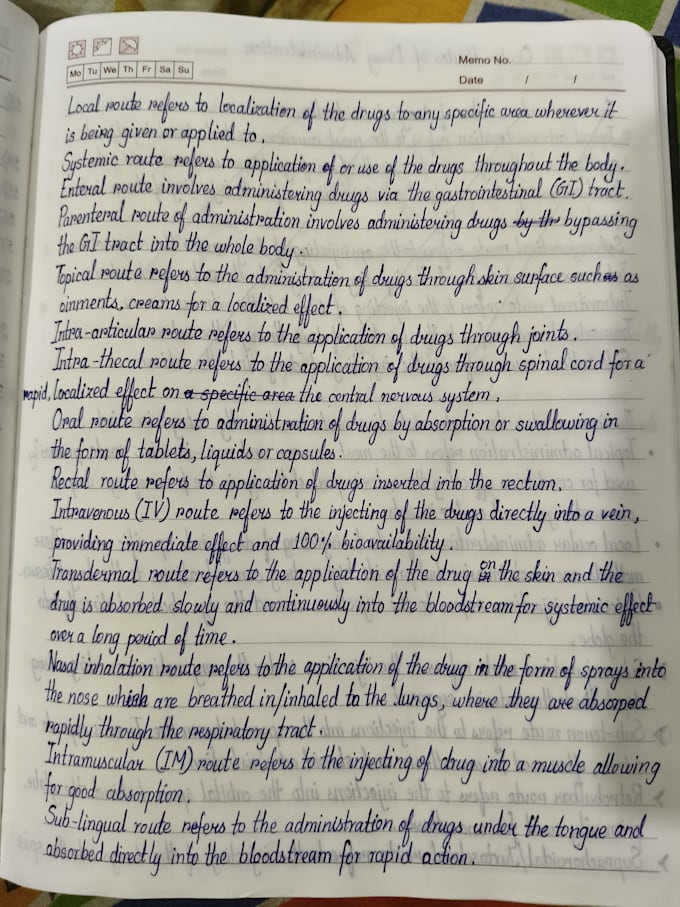 Mo Tu We Th Fr Sa Su
Memo No.
Date / /
Local route refers to localization of the drugs to any specific area wherever it
is being given or applied to.
Systemic route refers to application of or use of the drugs throughout the body.
Enteral route involves administering drugs via the gastrointestinal (GI) tract.
Parenteral route of administration involves administering drugs by the bypassing
the GI tract into the whole body.
Topical route refers to the administration of drugs through skin surface such as as
oinments, creams for a localized effect.
Intra-articular route refers to the application of drugs through joints.
Intra-thecal route refers to the application of drugs through spinal cord for a
rapid, localized effect on a specific area the central nervous system.
Oral route refers to administration of drugs by absorption or swallowing in
the form of tablets, liquids or capsules.
Rectal route refers to application of drugs inserted into the rectum.
Intravenous (IV) route refers to the injecting of the drugs directly into a vein,
providing immediate effect and 100% bioavailability.
Transdermal route refers to the application of the drug on the skin and the
drug is absorbed slowly and continuously into the bloodstream for systemic effect
over a long period of time.
Nasal inhalation route refers to the application of the drug in the form of sprays into
the nose which are breathed in/inhaled to the lungs, where they are absorped
rapidly through the respiratory tract.
Intramuscular (IM) route refers to the injecting of drug into a muscle allowing
for good absorption.
Sub-lingual route refers to the administration of drugs under the tongue and
absorbed directly into the bloodstream for rapid action.